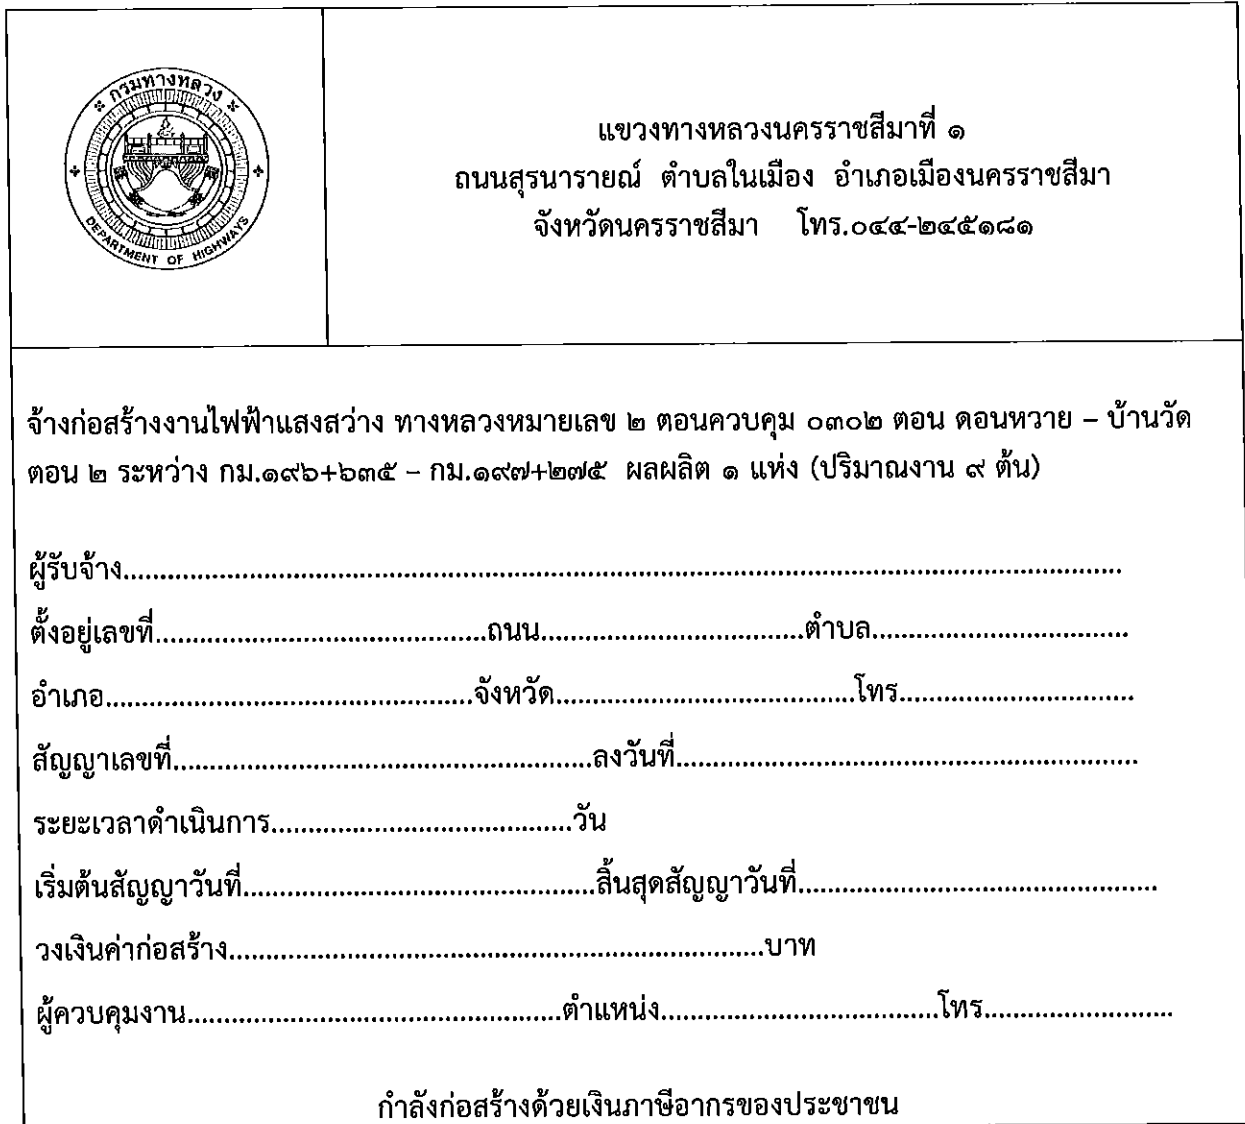 กรมทางหลวง
DEPARTMENT OF HIGHWAYS
แขวงทางหลวงนครราชสีมาที่ ๑
ถนนสุรนารายณ์ ตำบลในเมือง อำเภอเมืองนครราชสีมา
จังหวัดนครราชสีมา โทร.๐๔๔-๒๔๕๑๘๑
จ้างก่อสร้างงานไฟฟ้าแสงสว่าง ทางหลวงหมายเลข ๒ ตอนควบคุม ๐๓๐๒ ตอน ดอนหวาย – บ้านวัด
ตอน ๒ ระหว่าง กม.๑๙๖+๖๓๕ – กม.๑๙๗+๒๗๕ ผลผลิต ๑ แห่ง (ปริมาณงาน ๙ ต้น)
ผู้รับจ้าง................................................................................
ตั้งอยู่เลขที่.............................................ถนน....................................ตำบล...................................
อำเภอ..................................................จังหวัด.........................................โทร................................
สัญญาเลขที่.........................................................ลงวันที่...............................................................
ระยะเวลาดำเนินการ.........................................วัน
เริ่มต้นสัญญาวันที่................................................สิ้นสุดสัญญาวันที่.................................................
วงเงินค่าก่อสร้าง.........................................................................บาท
ผู้ควบคุมงาน...................................................ตำแหน่ง......................................โทร..........................
กำลังก่อสร้างด้วยเงินภาษีอากรของประชาชน